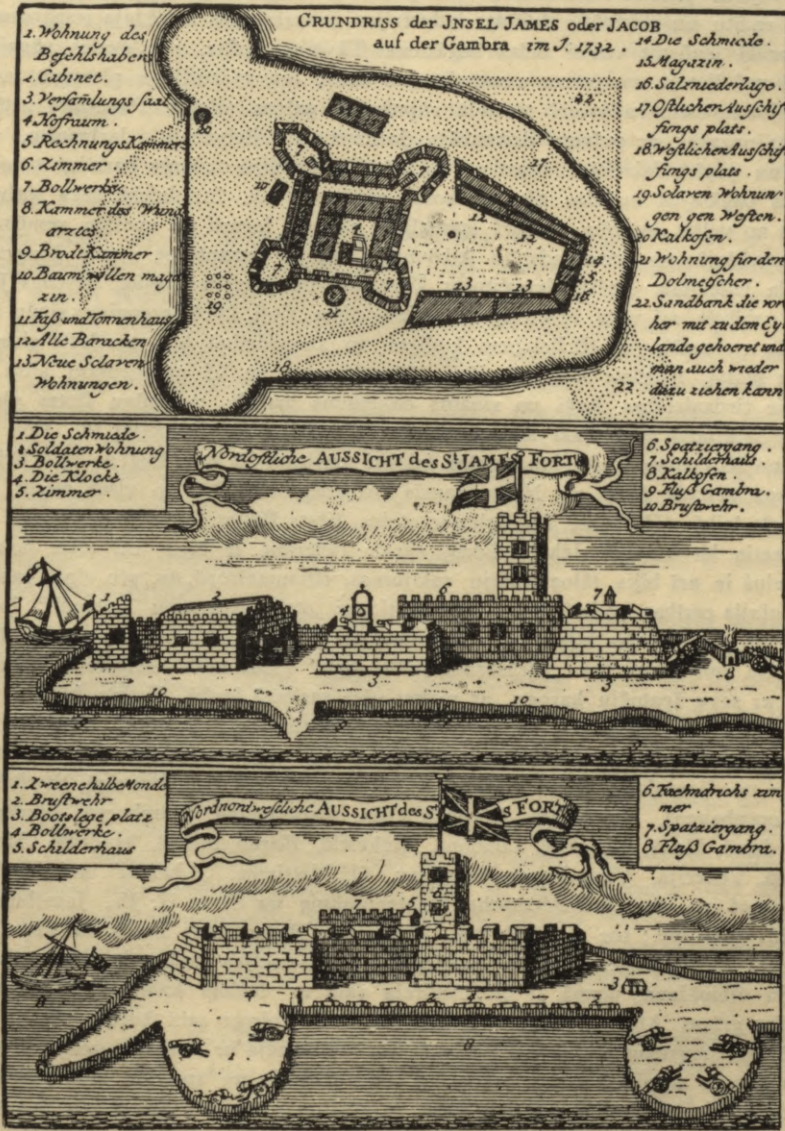 GRUNDRISS der JNSEL JAMES oder JACOB
auf der Gambra im J. 1732.
1. Wohnung des
Befehlshabers
2. Cabinet.
3. Versamlungs saal
4. Hofraum.
5. Rechnungs Kammer
6. Zimmer.
7. Bollwerke.
8. Kammer des Wund
arztes.
9. Brodt Kammer.
10. Baum wollen maga
zin.
11. Faß und Tonnenhaus
12. Alle Baracken
13. Neue Sclaven
Wohnungen.
14 Die Schmiede.
15. Magazin.
16. Salzniederlage.
17. Ostlicher Ausschif
fungs plats.
18. Westlicher Ausschif
fungs plats.
19. Sclaven Wohnun
gen gen Westen.
20 Kalkofen.
21 Wohnung fur den
Dolmetscher.
22. Sandbank die vor
her mit zu dem Ey
lande gehoeret und
man auch wieder
dazu ziehen kann
22
20
17
7
7
10
12
12
4
14
15
16
13
13
7
7
19
21
18
22
1. Die Schmiede.
2 Soldaten Wohnung
3. Bollwerke.
4. Die Klocke
5. Zimmer.
Nordostliche AUSSICHT des St. JAMES FORTS
6. Spatziergang.
7. Schilderhaus.
8 Kalkofen.
9. Fluß Gambra.
10. Brustwehr.
1
2
4
6
7
3
3
8
10
10
1. Zweene halbe Monde
2. Brustwehr
3. Bootslege platz
4. Bollwerke.
5. Schilderhaus
Nordnordwestliche AUSSICHT des S FORTS
6. Faehndrichs zim
mer.
7. Spatziergang.
8. Fluß Gambra.
7
5
6
4
4
3
2
2
8
8
1
1